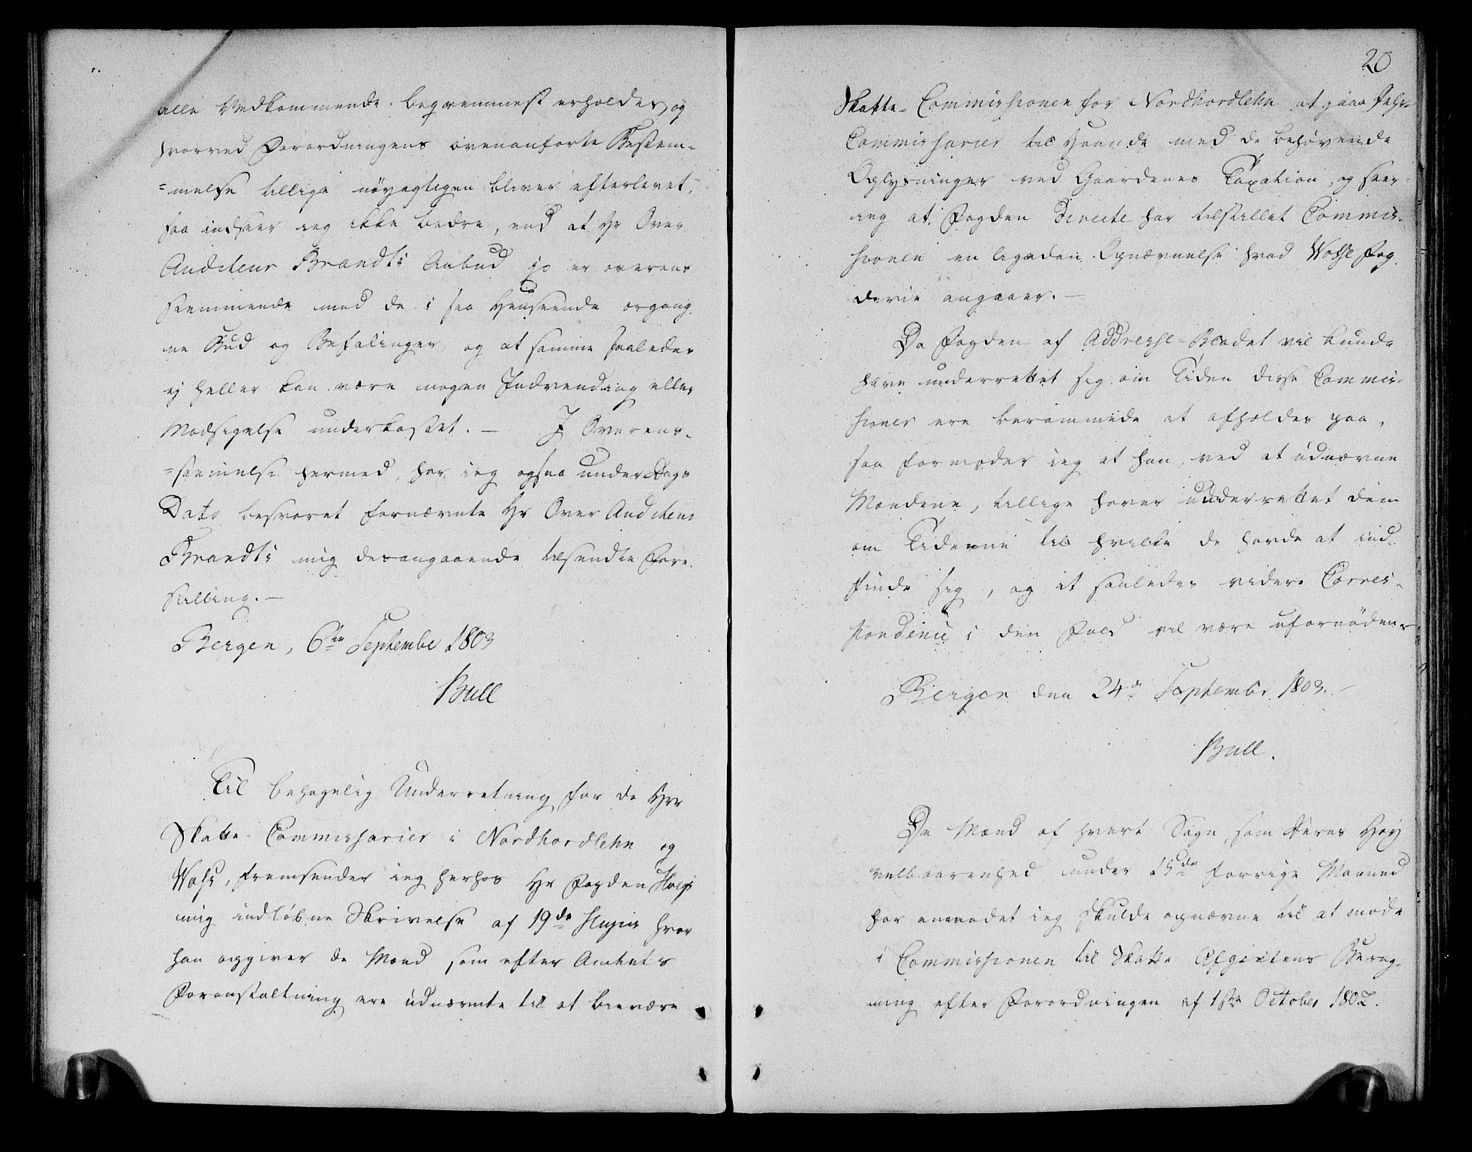 alle Vedkommende begvemmest erholdes, og
hvorved Forordningens ovenanførte Bestem-
=melse tillige nöyagtigen bliver efterlevet,
saa indseer ieg ikke bedre, end at Hr Over
Auditeur Brandts Anbud jo er overens
stemmende med de i saa Henseende ergang
ne Bud og Befalinger, og at samme saaledes
ej heller kan være nogen Indvending eller
Modsigelse underkastet. – I Overens-
=stemmelse hermed, har ieg ogsaa under Dags
Dato besvaret fornævnte Hr Over Auditeur
Brandts mig desangaaende tilsendte Fore
stilling. –
Bergen, 6te September 1803
Bull
Til behagelig Underretning for de Hrr
Skatte-Commissarier i Nordhordlehn og
Woss, fremsender ieg herhos Hr Fogden
mig indløbne Skrivelse af 19de hvor
han opgiver de Mænd, som efter Amtets
Foranstaltning ere udnævnte til at bievære
20
Skatte-Commissionen for Nordhordlehn at gaae
Commissarier til Haande med de behøvende
Oplysninger ved Gaardenes Taxation, og seer
ieg at Fogden Directe har tilstillet Commis-
sionen en ligedan Opnævnelse hvad Wosse Fog
derie angaaer. –
Da Fogden af Addresse-Bladet vil kunde
have underrettet sig om Tiden disse Commis-
sioner ere berammede at afholdes paa,
saa formoder ieg at han, ved at udnævne
Mændene, tillige haver underrettet dem
om Tiderne til hvilke de havde at ind
finde sig, og at saaledes videre Corres-
pondence i den Fald vil være ufornøden
Bergen den 24de September 1803. –
Bull.
De Mænd af hvert Sogn, som Deres Høy
velbaarenhed under 15de forrige Maaned
har anmodet ieg skulde opnævne til at møde
i Commissionen til Skatte Afgivtens Bereg-
ning efter Forordningen af 1ste October 1802.